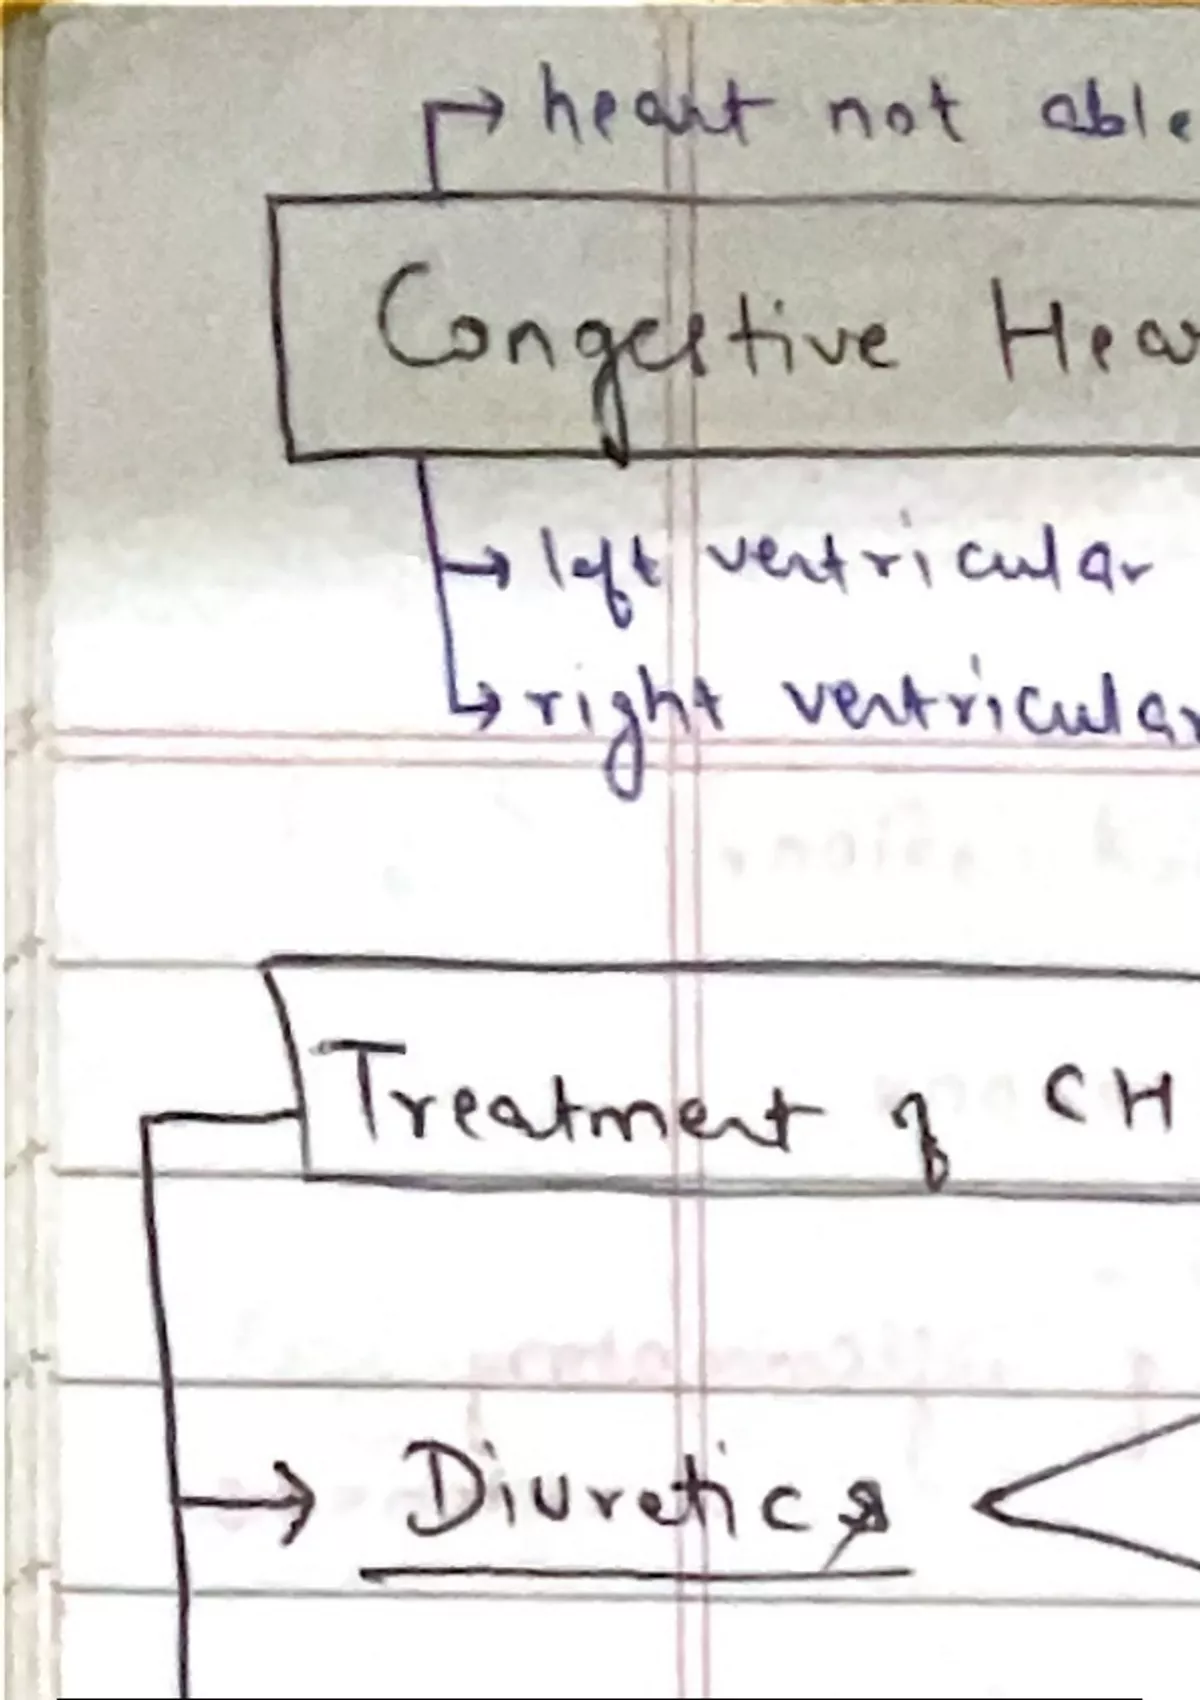 → heart not able
Congestive Hear
→ left ventricular
→ right ventricular
Treatment of CH
→ Diuretics